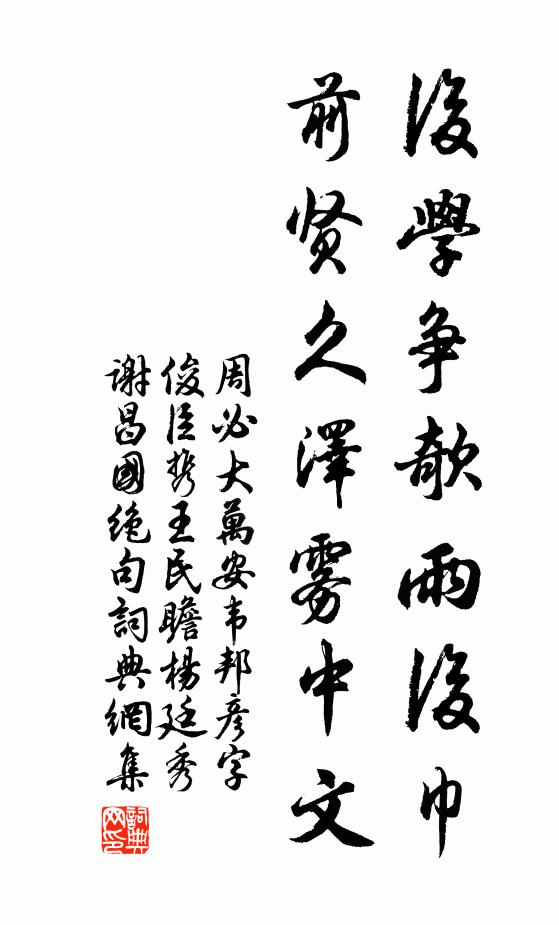 後學争欹雨後巾
前贤久澤雾中文
周必大萬安韦邦彦字
俊臣携王民瞻楊廷秀
谢昌國绝句詞典網集
詞典网印